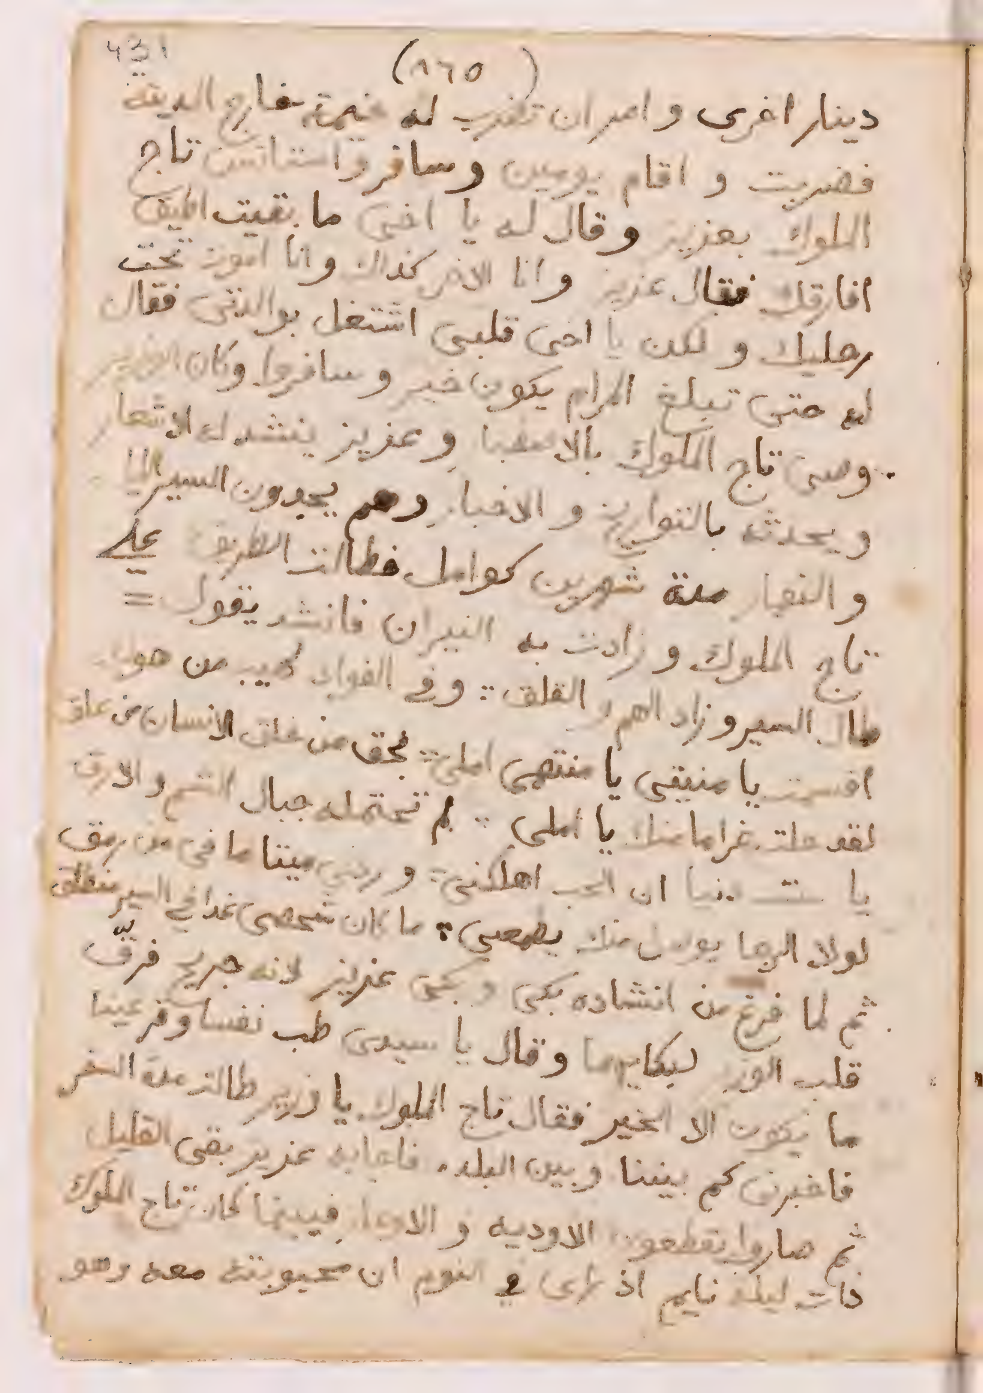 431
(١٦٥)
دينار اخرى و امر ان تضرب له خيمة خارج المدينة
فضربت و اقام يومين وسافر واستانس تاج
الملوك بعزيز وقال له يا اخى ما بقيت اطيق
افارقك فقال عزيز وانا الاخر كذلك وانا اموت تحت
رجليك و لكن يا اخى قلبى اشتغل بوالدتى فقال
له حتى تبلغ المرام يكون خير و سافروا وكان الوزير
وصى تاج الملوك بالاصطبار و عزيز ينشد له الاشعار
و يحدثه بالتواريخ و الاخبار وهم يجدون السير الليل
و النهار مدة شهرين كوامل فطالت الطريق على
تاج الملوك و زادت به النيران فانشد يقول =
طال السير و زاد الهم و القلق :: وفى الفواد لهيب من هوى
اقسمت يا منيتى يا منتهى املى :: بحق من خلق الانسان من علق
لقد حملت غراما منك يا املى :: لم تحتمله جبال الشم و الارق
يا ست دنيا ان الحب اهلكنى :: و ردنى ميتا ما فى من رمق
لولا الرجا بوصل منك يطمعنى :: ما كان شخصى غدا فى السير منطلق
ثم لما فرغ من انشاده بكى و بكى عزيز لانه جريح فرقّ
قلب الوزير لبكايهما وقال يا سيدى طب نفسا وقر عينا
ما يكون الا الخير فقال تاج الملوك يا وزير طالت مدة السفر
فاخبرنى كم بيننا و بين البلد فاجابه عزيز بقى القليل
ثم صاروا يقطعون الاوديه و الاوعار فبينما كان تاج الملوك
ذات ليلة نايم اذ راى فى النوم ان محبوبته معه وهو